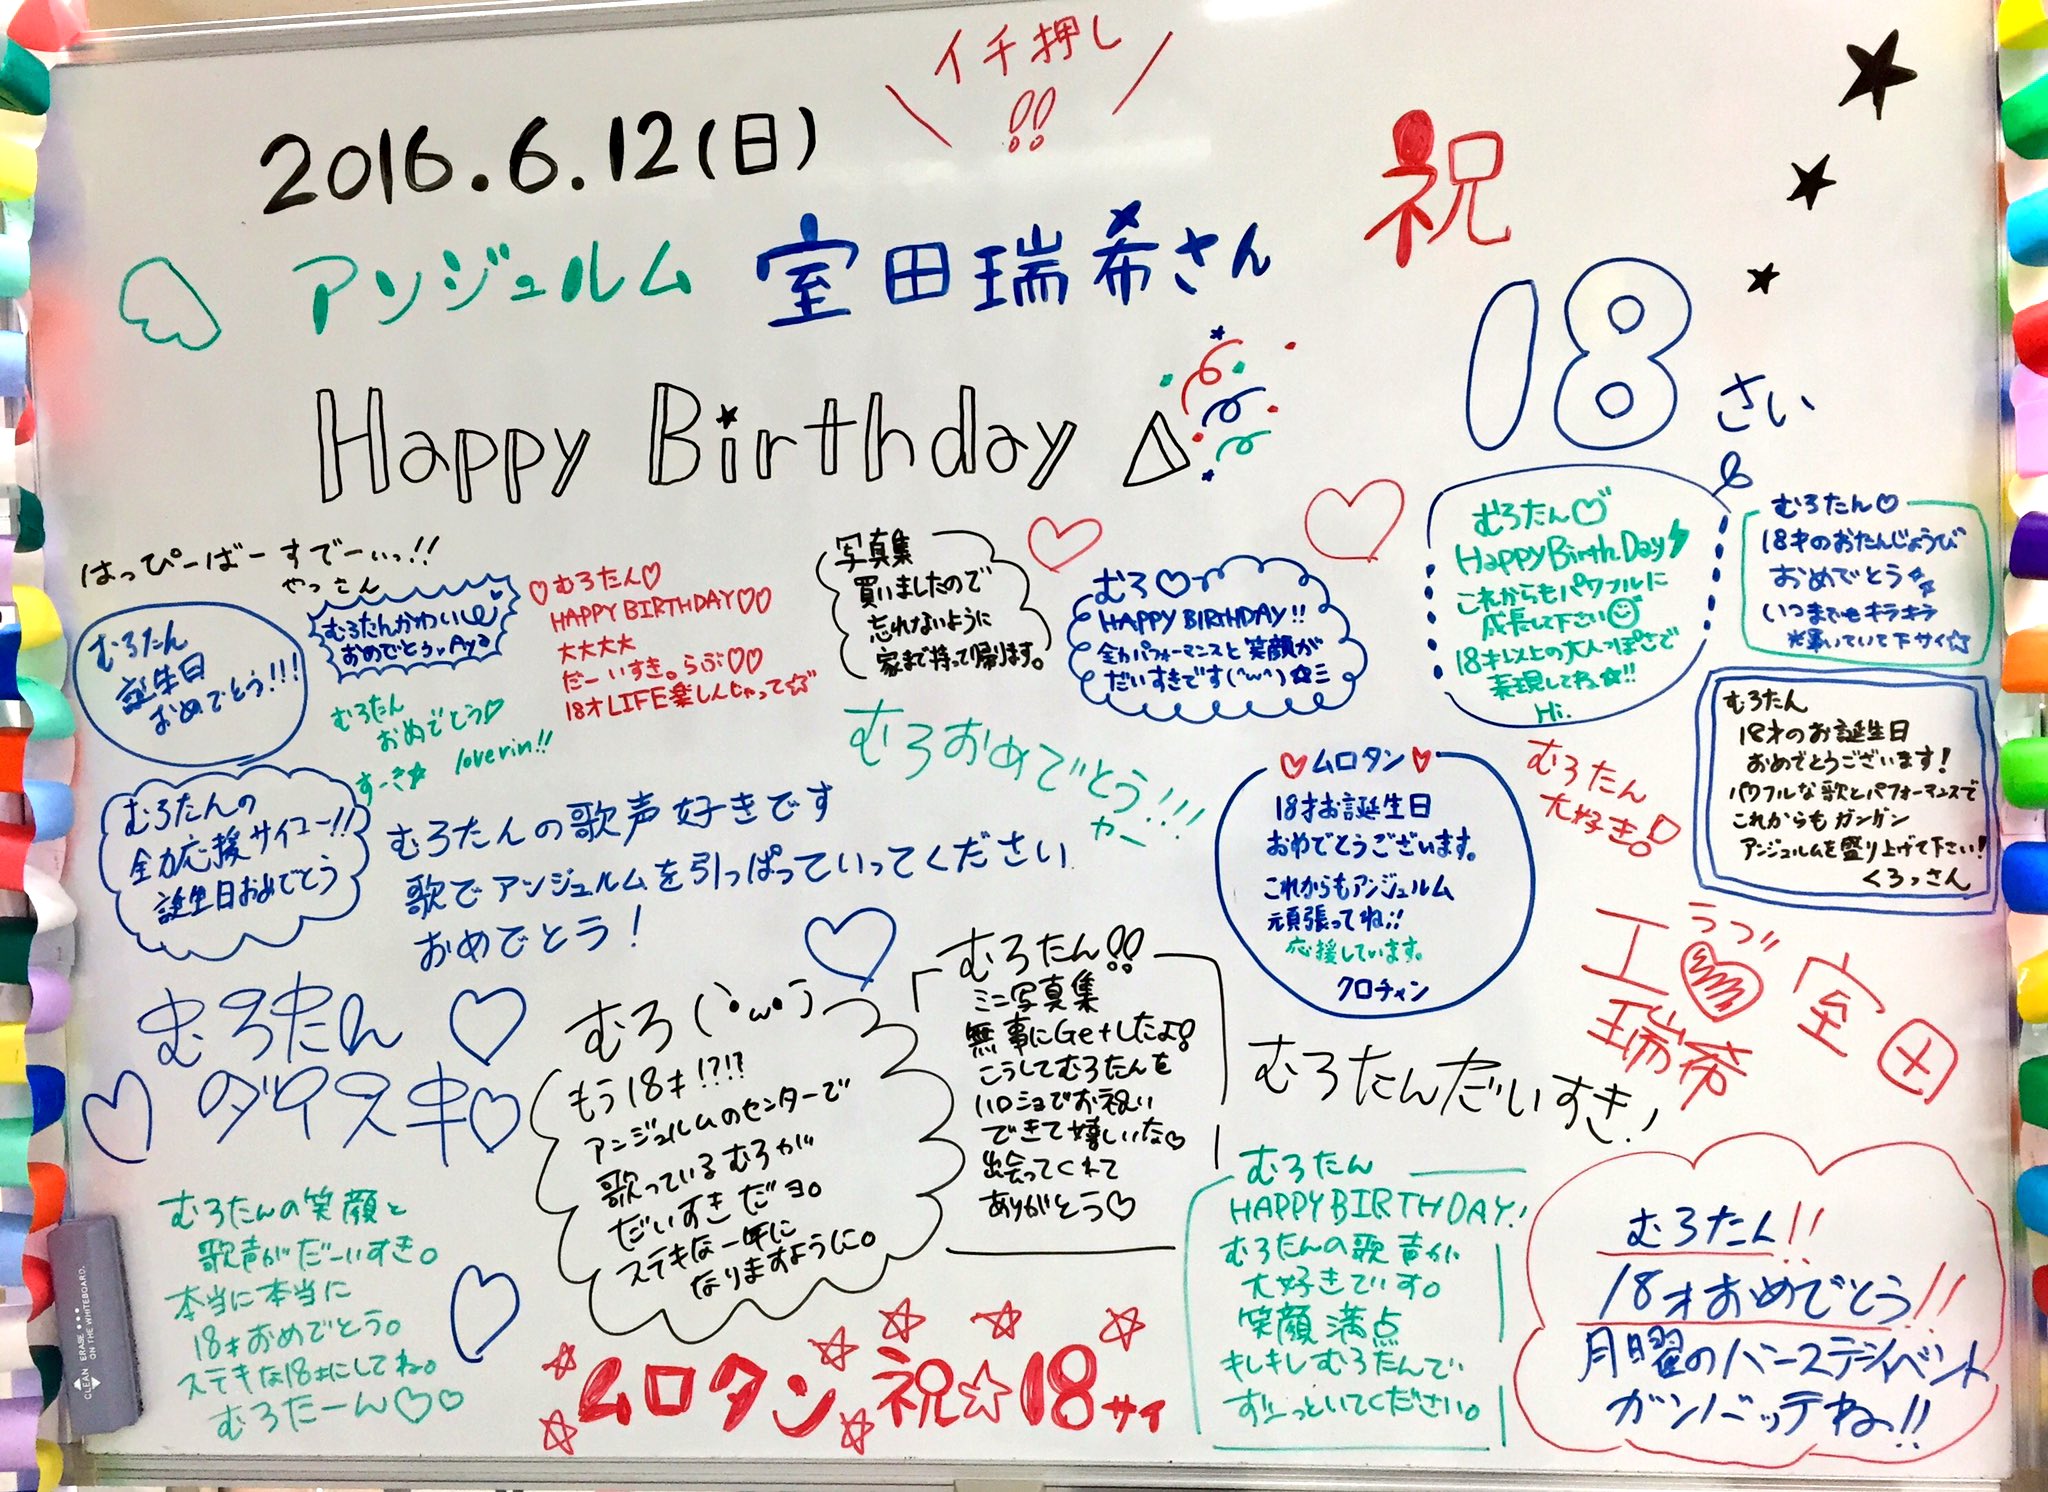 イチ押し!!
2016.6.12(日)
祝
アンジュルム 室田瑞希さん
18さい
Happy Birthday
はっぴーばーすでーぃっ!!
やっさん
むろたん
誕生日
おめでとう!!!
むろたんかわいい
おめでとう Aya
♡むろたん♡
HAPPY BIRTHDAY♡♡
大大大大
だーいすき。らぶ♡♡
18才LIFE楽しんじゃって☆
むろたん
おめでとう♡
すーさん
loverin!!
写真集
買いましたので
忘れないように
家まで持って帰ります。
むろ♡
HAPPY BIRTHDAY!!
全力パフォーマンスと笑顔が
だいすきです(^ω^)☆ミ
むろたん♡
Happy Birth Day
これからもパワフルに
成長して下さい
18才以上の大人っぽさで
表現してね☆!!
Hi.
むろたん♡
18才のおたんじょうび
おめでとう
いつまでもキラキラ
輝いていて下サイ☆
むろたん
18才のお誕生日
おめでとうございます!
パワフルな歌とパフォーマンスで
これからもガンガン
アンジュルムを盛り上げて下さい!
くろっさん
むろおめでとう!!!
やー
♥ムロタン♥
18才お誕生日
おめでとうございます。
これからもアンジュルム
頑張ってね!!
応援しています。
クロチャン
むろたん
大好き!
むろたんの
全力応援サイコー!!
誕生日おめでとう
むろたんの歌声好きです
歌でアンジュルムを引っぱっていってください
おめでとう!
むろたん♡
♡ダイスキ♡
むろ(`・ω・´)
もう18才!?!?
アンジュルムのセンターで
歌っているむろが
だいすきだヨ。
ステキな一年に
なりますように。
むろたん!!
ミニ写真集
無事にGetしたよ!
こうしてむろたんを
ハロショでお祝い
できて嬉しいな♡
出会ってくれて
ありがとう♡
むろたんだいすき!
ラブ
工♥室田
瑞希
むろたんの笑顔と
歌声がだーいすき。
本当に本当に
18才おめでとう。
ステキな18才にしてね。
むろたーん♡♡
ムロタン祝☆18サイ
むろたん
HAPPY BIRTHDAY!
むろたんの歌声が
大好きでいす。
笑顔満点
キレキレむろたんで
ずーっといてください。
むろたん!!
18才おめでとう!!
月曜のバースデーイベント
ガンバッテね!!
CLEAN ERASE
ON THE WHITEBOARD.